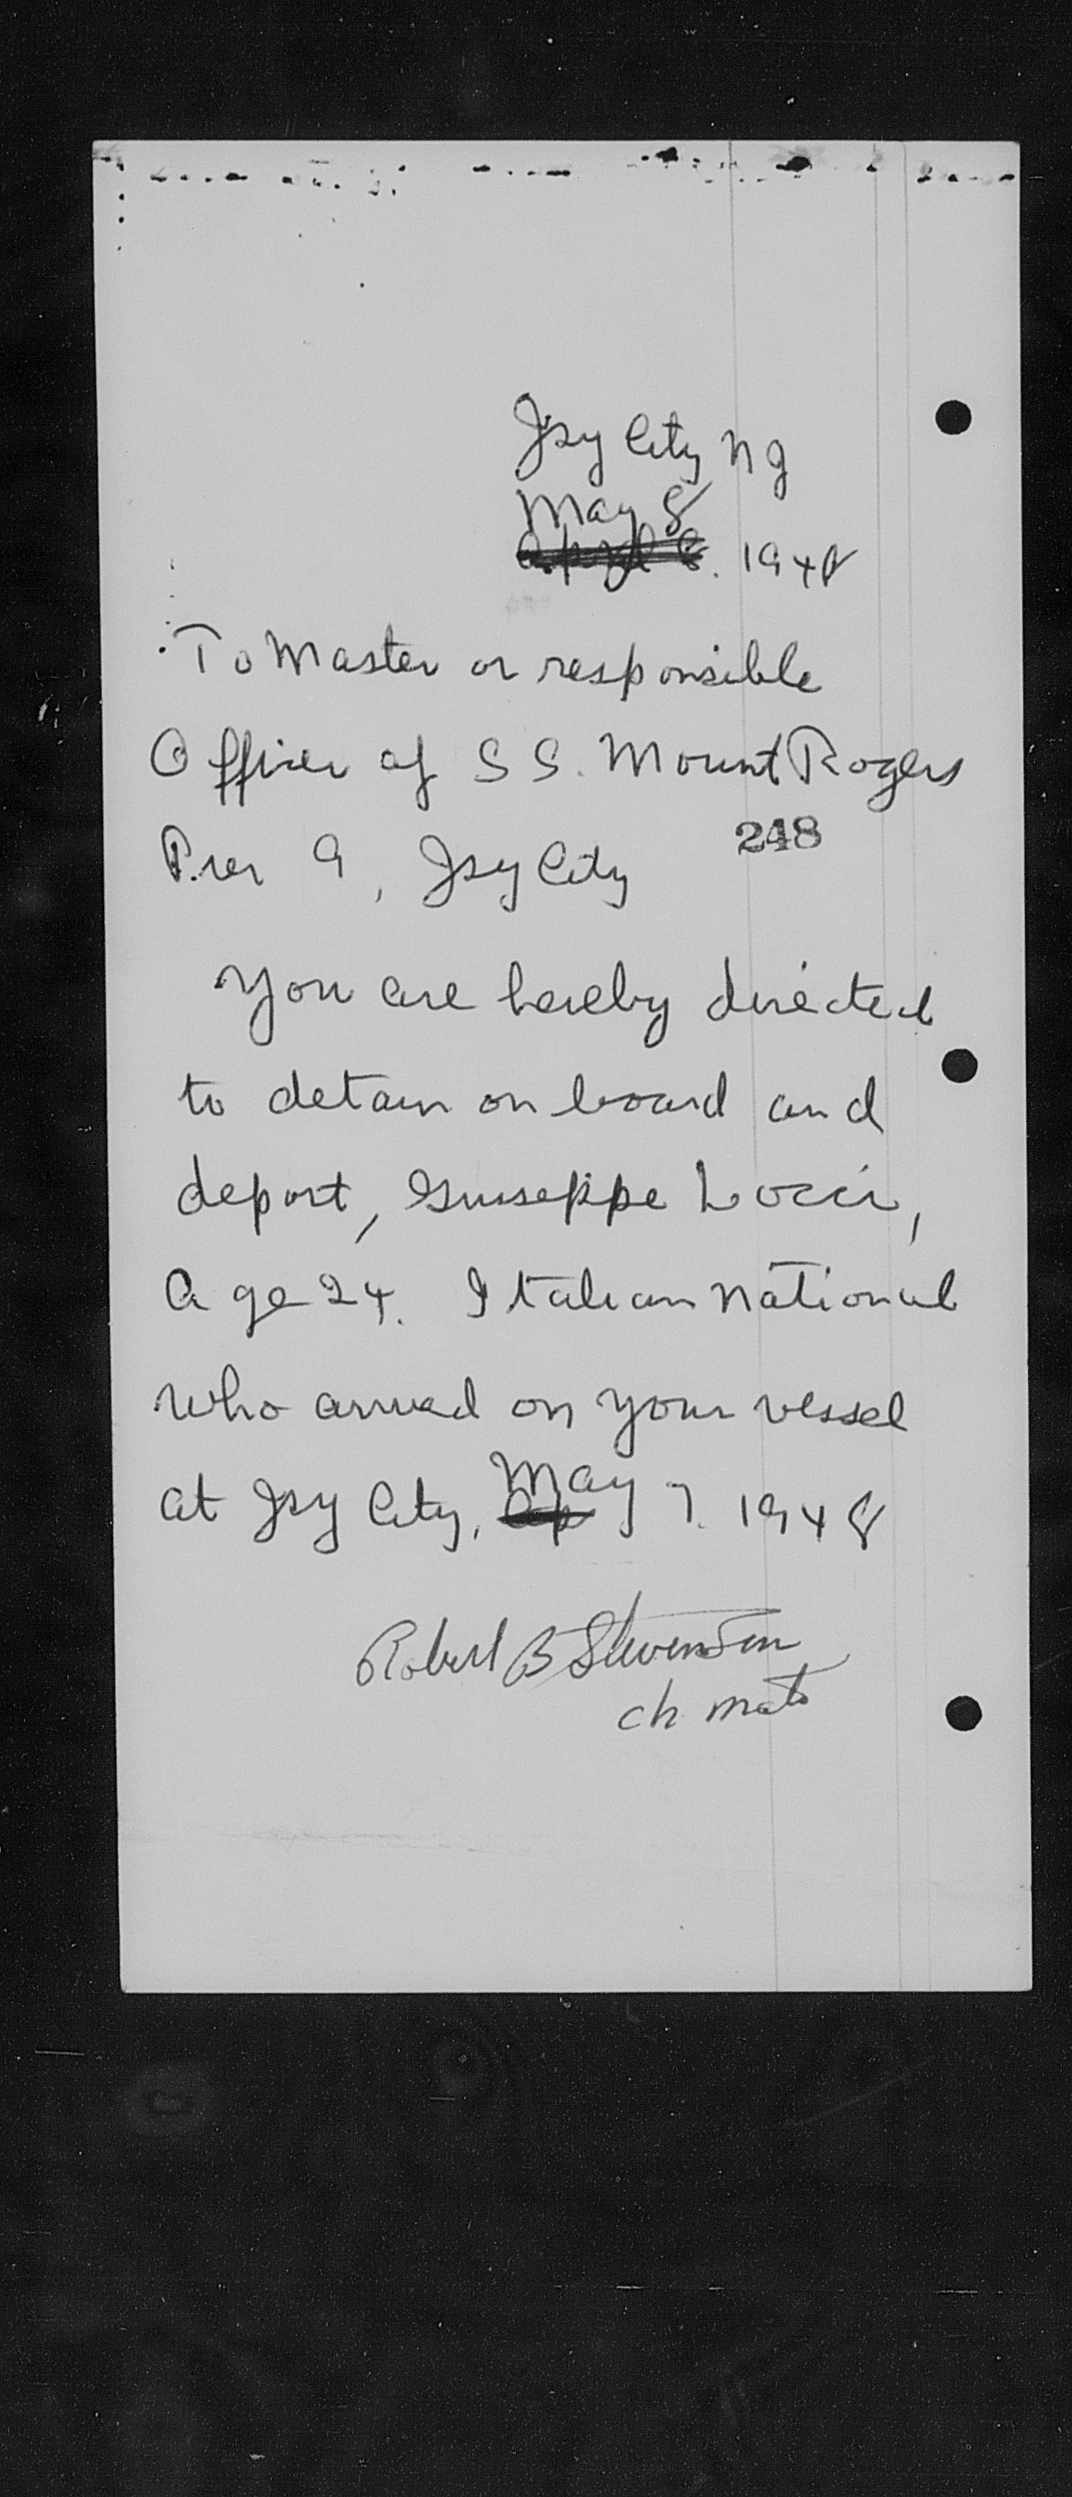 Jsy City NJ
May 8
April 8. 1948
To Master or responsible
Officer of SS. Mount Rogers
248
Pier 9, Jsy City
You are hereby directed
to detain on board and
deport, Guiseppe Locci,
Age 24. Italian National
who arrived on your vessel
at Jsy City, Ap May 7. 1948
Robert B Stevenson
ch mate